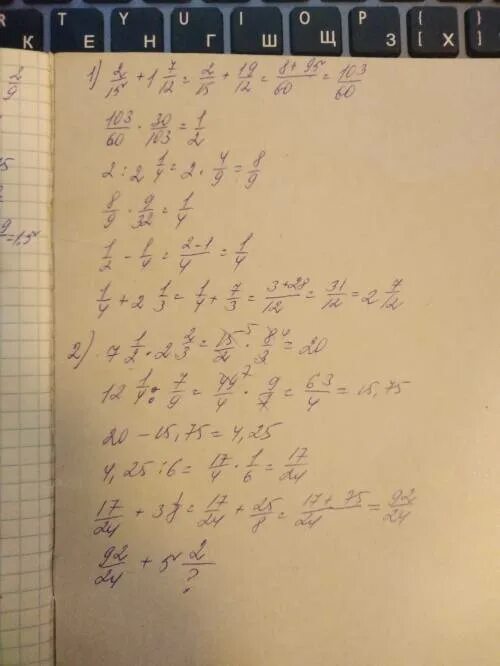 R T Y U I O P { [ } ]
К Е Н Г Ш Щ З Х
2/9
1) 2/15 + 1 7/12 = 2/15 + 19/12 = 8+95/60 = 103/60
103/60 · 30/103 = 1/2
2 : 2 1/4 = 2 · 4/9 = 8/9
8/9 · 9/32 = 1/4
=1,5
1/2 - 1/4 = 2-1/4 = 1/4
1/4 + 2 1/3 = 1/4 + 7/3 = 3+28/12 = 31/12 = 2 7/12
2) 7 1/2 · 2 2/3 = 15/2 · 8/3 = 20
12 1/4 : 7/9 = 49/4 · 9/7 = 63/4 = 15,75
20 - 15,75 = 4,25
4,25 : 6 = 17/4 · 1/6 = 17/24
17/24 + 3 1/8 = 17/24 + 25/8 = 17+75/24 = 92/24
92/24 + 5 2/?